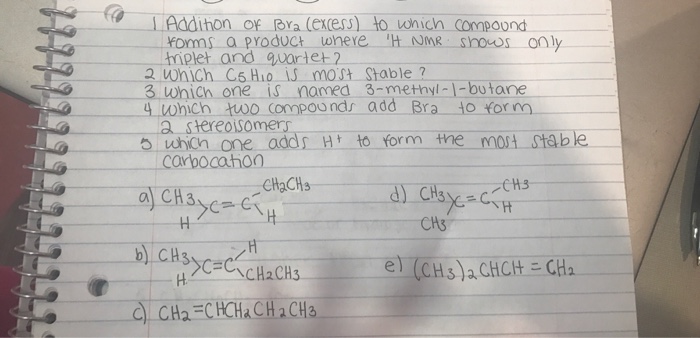 1 Addition of Br2 (excess) to which compound
forms a product where 'H NMR shows only
triplet and quartet?
2 which C5H10 is most stable?
3 which one is named 3-methyl-1-butane
4 which two compounds add Br2 to form
2 stereoisomers
5 which one adds H+ to form the most stable
carbocation
a) CH3 H >C=C CH2CH3 H
d) CH3 CH3 >C=C CH3 H
b) CH3 H >C=C H CH2CH3
e) (CH3)2CHCH=CH2
c) CH2=CHCH2CH2CH3